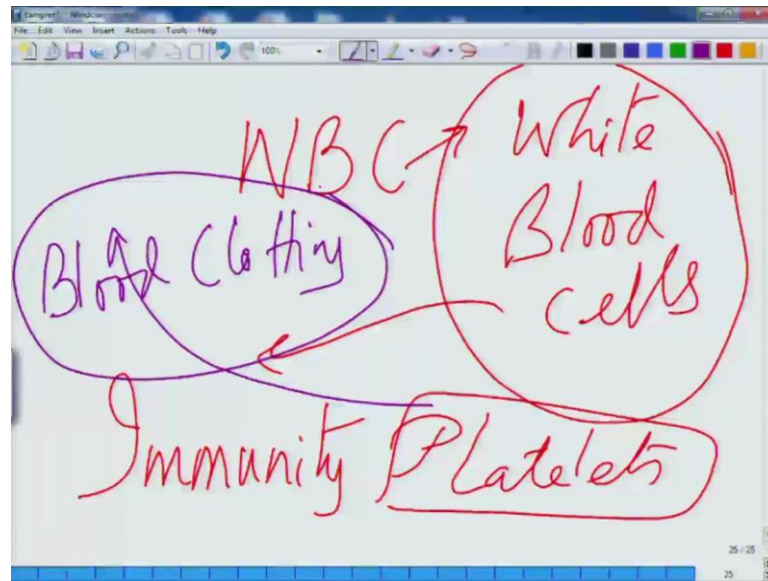 File Edit View Insert Actions Tools Help
100%
WBC → White
Blood
Cells
Blood Clotting
Immunity Platelets
25 / 25
25